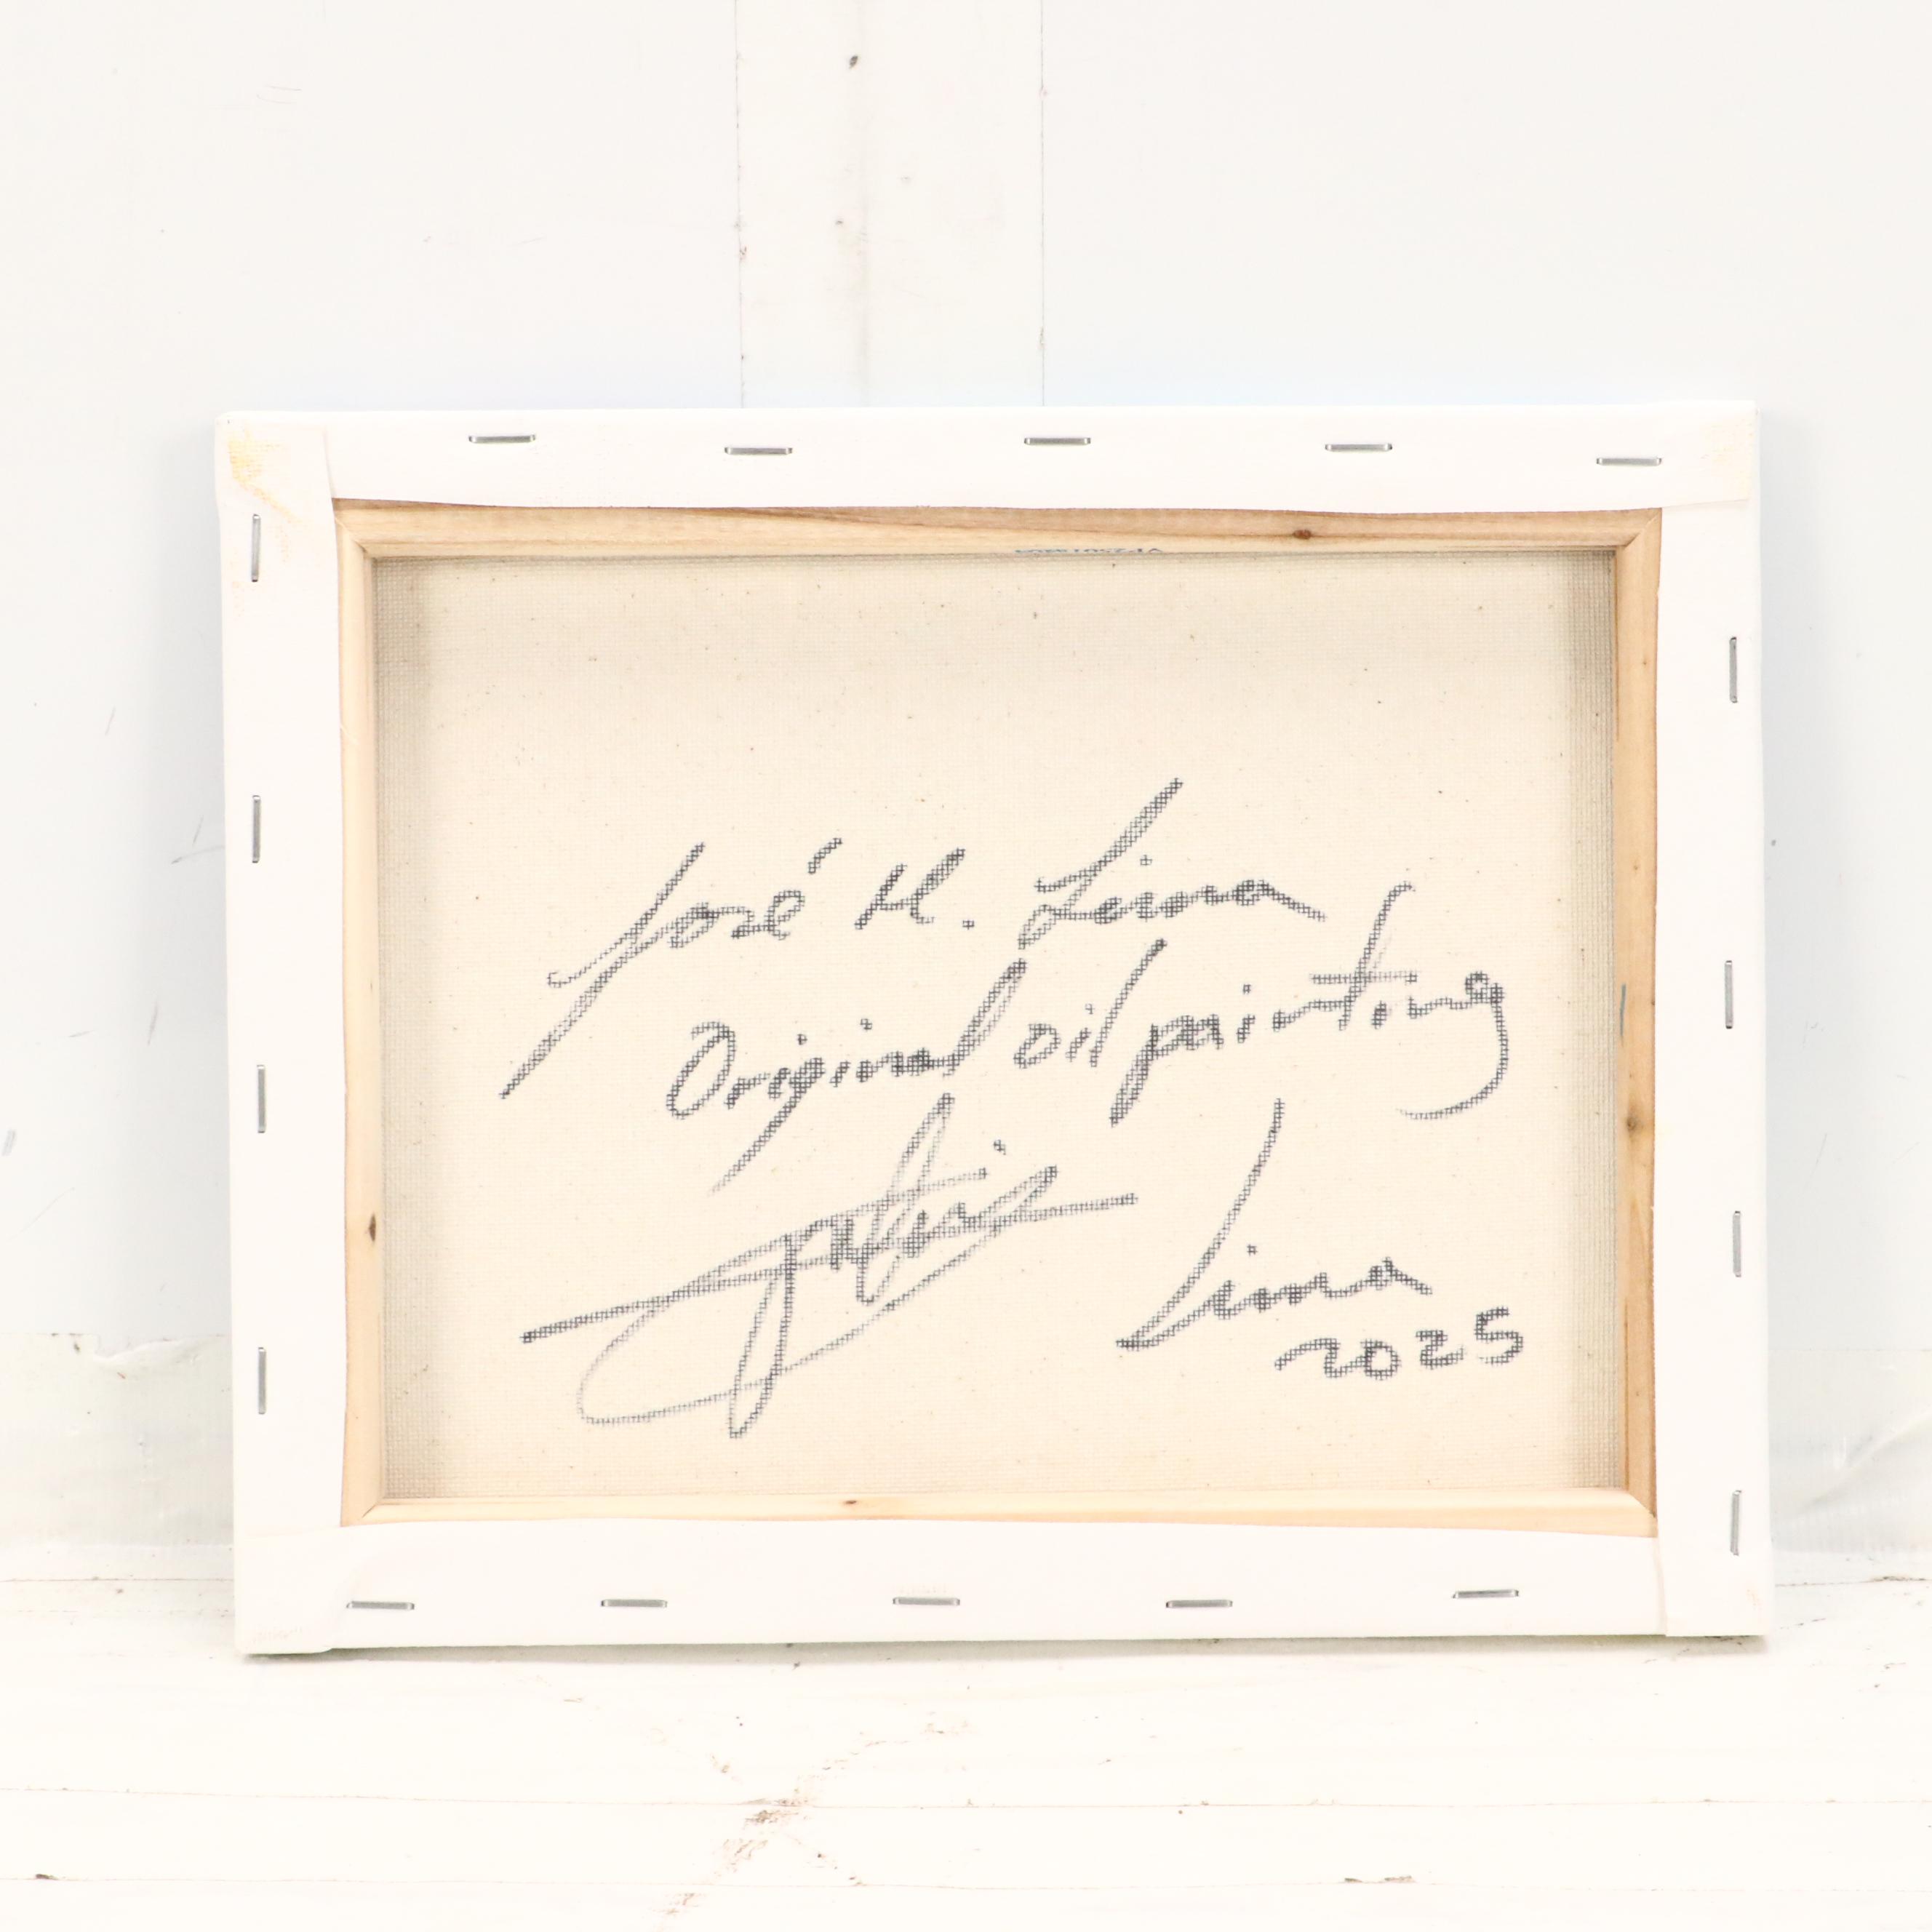 José M. Lima
Original oil painting
Lima
2025